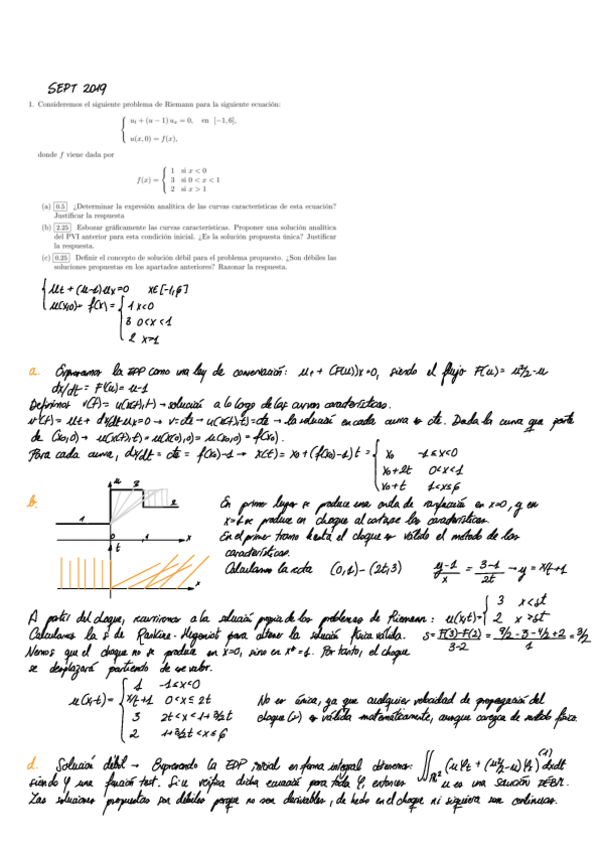 SEPT 2019
1. Consideremos el siguiente problema de Riemann para la siguiente ecuación:
{ u_t + (u − 1) u_x = 0, en [−1, 6],
u(x, 0) = f(x),
donde f viene dada por
f(x) = { 1 si x < 0
3 si 0 < x < 1
2 si x > 1
(a) 0.5 ¿Determinar la expresión analítica de las curvas características de esta ecuación?
Justificar la respuesta
(b) 2.25 Esbozar gráficamente las curvas características. Proponer una solución analítica
del PVI anterior para esta condición inicial. ¿Es la solución propuesta única? Justificar
la respuesta.
(c) 0.25 Definir el concepto de solución débil para el problema propuesto. ¿Son débiles las
soluciones propuestas en los apartados anteriores? Razonar la respuesta.
{ u_t + (u-1) u_x = 0 x∈[-1,6]
u(x,0) = f(x) = { 1 x<0
3 0<x<1
2 x>1
a. Expresamos la EDP como una ley de conservación: u_t + (F(u))_x = 0, siendo el flujo F(u) = u²/2 - u
dx/dt = F'(u) = u-1
Definimos v(t) = u(x(t),t) → solución a lo largo de las curvas características.
v'(t) = u_t + dx/dt u_x = 0 → v = cte → u(x(t),t) = cte → la solución en cada curva es cte. Dada la curva que parte
de (x₀,0) → u(x(t),t) = u(x(0),0) = u(x₀,0) = f(x₀).
Para cada curva, dx/dt = cte = f(x₀)-1 → x(t) = x₀ + (f(x₀)-1)t = { x₀ -1≤x<0
x₀+2t 0<x<1
x₀+t 1<x≤6
b.
u
3
2
1
0 1 x
t
x
En primer lugar se produce una onda de rarefacción en x=0, y en
x=1 se produce un choque al cortarse las características.
En el primer tramo hasta el choque es válido el método de las
características.
Calculamos la recta (0,1) - (2t,3) y-1/x = 3-1/2t → y = x/t+1
A partir del choque, recurrimos a la solución propia de los problemas de Riemann: u(x,t) = { 3 x<st
2 x>st
Calculamos la s de Rankine-Hugoniot para obtener la solución física válida. s = F(3)-F(2)/3-2 = 9/2-3-4/2+2/1 = 3/2
Vemos que el choque no se produce en x=0, sino en x*=1. Por tanto, el choque
se desplazará partiendo de ese valor.
u(x,t) = { 1 -1≤x<0
x/t+1 0<x≤2t
3 2t<x<1+3/2t
2 1+3/2t<x≤6
No es única, ya que cualquier velocidad de propagación del
choque (s) es válida matemáticamente, aunque carezca de sentido físico.
d. Solución débil → Expresando la EDP inicial en forma integral obtenemos: ∬_ℝ² (uφ_t + (u²/2-u)φ_x) dxdt (1)
siendo φ una función test. Si u verifica dicha ecuación para toda φ, entonces u es una SOLUCIÓN DÉBIL.
Las soluciones propuestas son débiles porque no son derivables, de hecho en el choque ni siquiera son continuas.